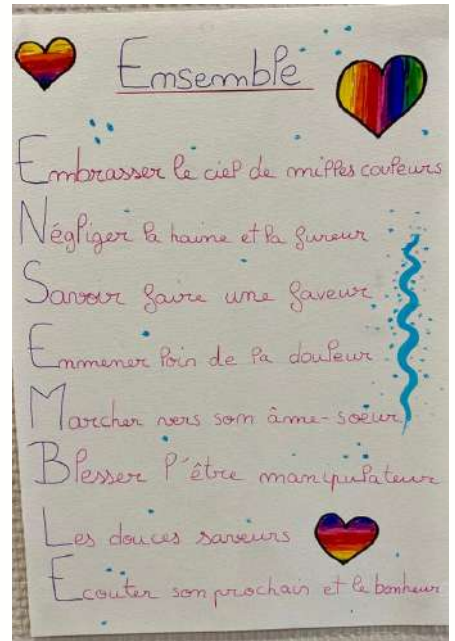 Ensemble
Embrasser le ciel de milles couleurs
Négliger la haine et la fureur
Savoir faire une faveur
Emmener loin de la douleur
Marcher vers son âme-soeur
Blesser l'être manipulateur
Les douces saveurs
Ecouter son prochain et le bonheur